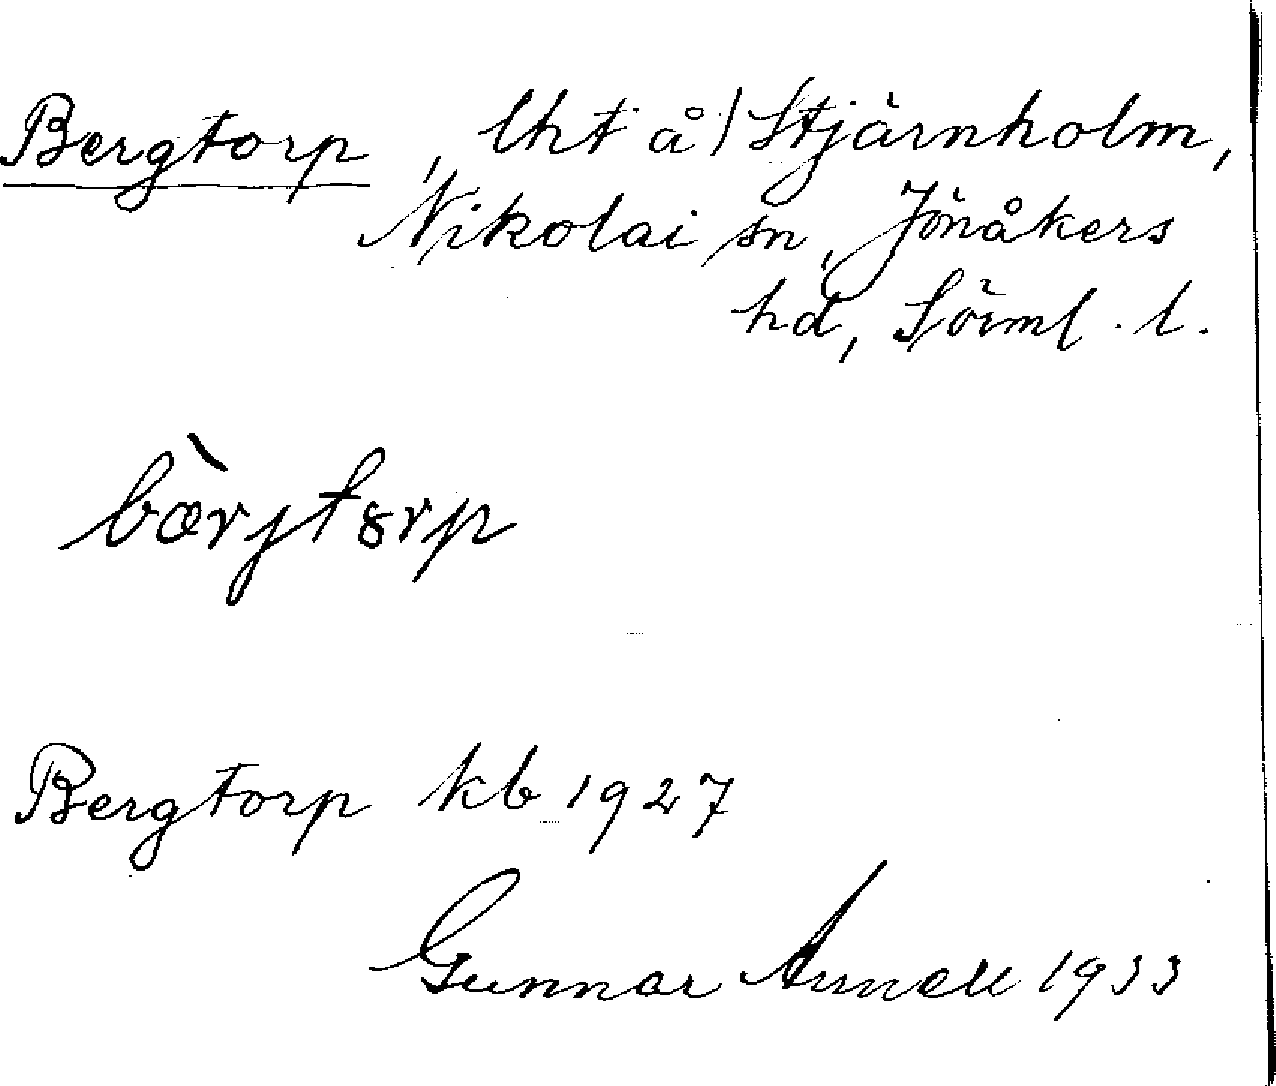 Bergtorp, lht å) Stjärnholm,
Nikolai sn, Jönåkers
hd, Sörml. l.
bæ̀rjtɔrp
Bergtorp kb 1927
Gunnar Arnell 1933